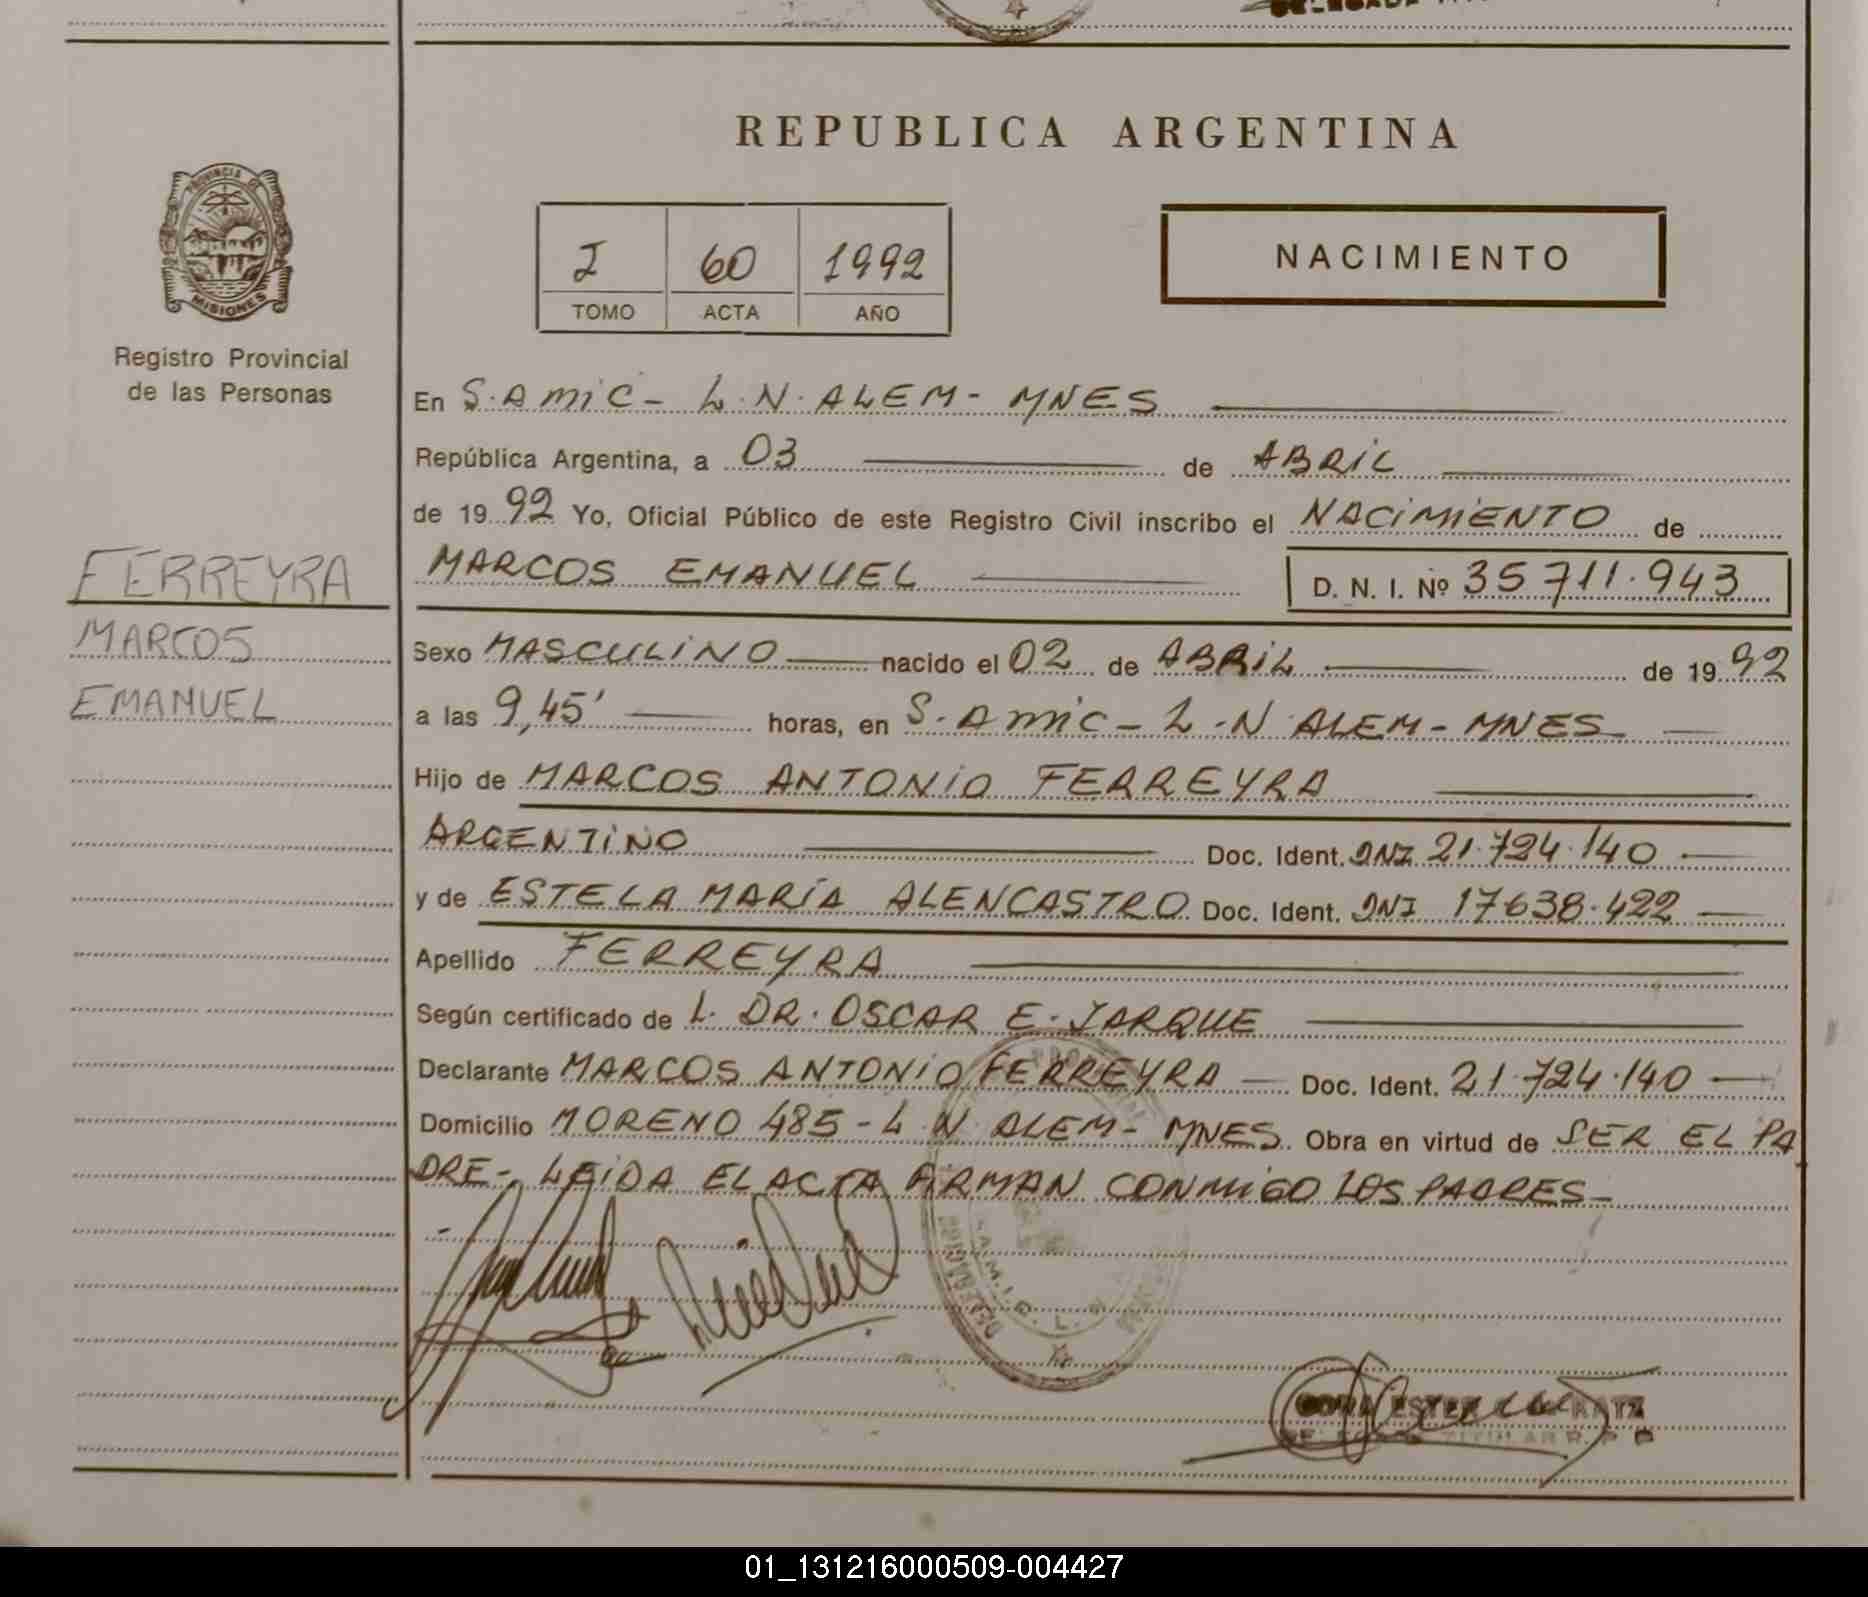 REPUBLICA ARGENTINA
PROVINCIA DE
MISIONES
Registro Provincial
de las Personas
I 60 1992
TOMO ACTA AÑO
NACIMIENTO
En S.AMIC- L.N.ALEM- MNES
República Argentina, a 03 de ABRIL
de 19 92 Yo, Oficial Público de este Registro Civil inscribo el NACIMIENTO de
MARCOS EMANUEL D. N. I. Nº 35711.943
FERREYRA
MARCOS
EMANUEL
Sexo MASCULINO nacido el 02 de ABRIL de 19 92
a las 9,45' horas, en S.AMIC- L.N ALEM- MNES
Hijo de MARCOS ANTONIO FERREYRA
ARGENTINO Doc. Ident. DNI 21.724.140
y de ESTELA MARÍA ALENCASTRO Doc. Ident. DNI 17638.422
Apellido FERREYRA
Según certificado de L. DR. OSCAR E. JARQUE
Declarante MARCOS ANTONIO FERREYRA Doc. Ident. 21.724.140
Domicilio MORENO 485-L N ALEM- MNES. Obra en virtud de SER EL PA
DRE- LEIDA EL ACTA FIRMAN CONMIGO LOS PADRES-
S.A.M.I.C. L.
ESTER RATZ
TITULAR R. P. P
01_131216000509-004427